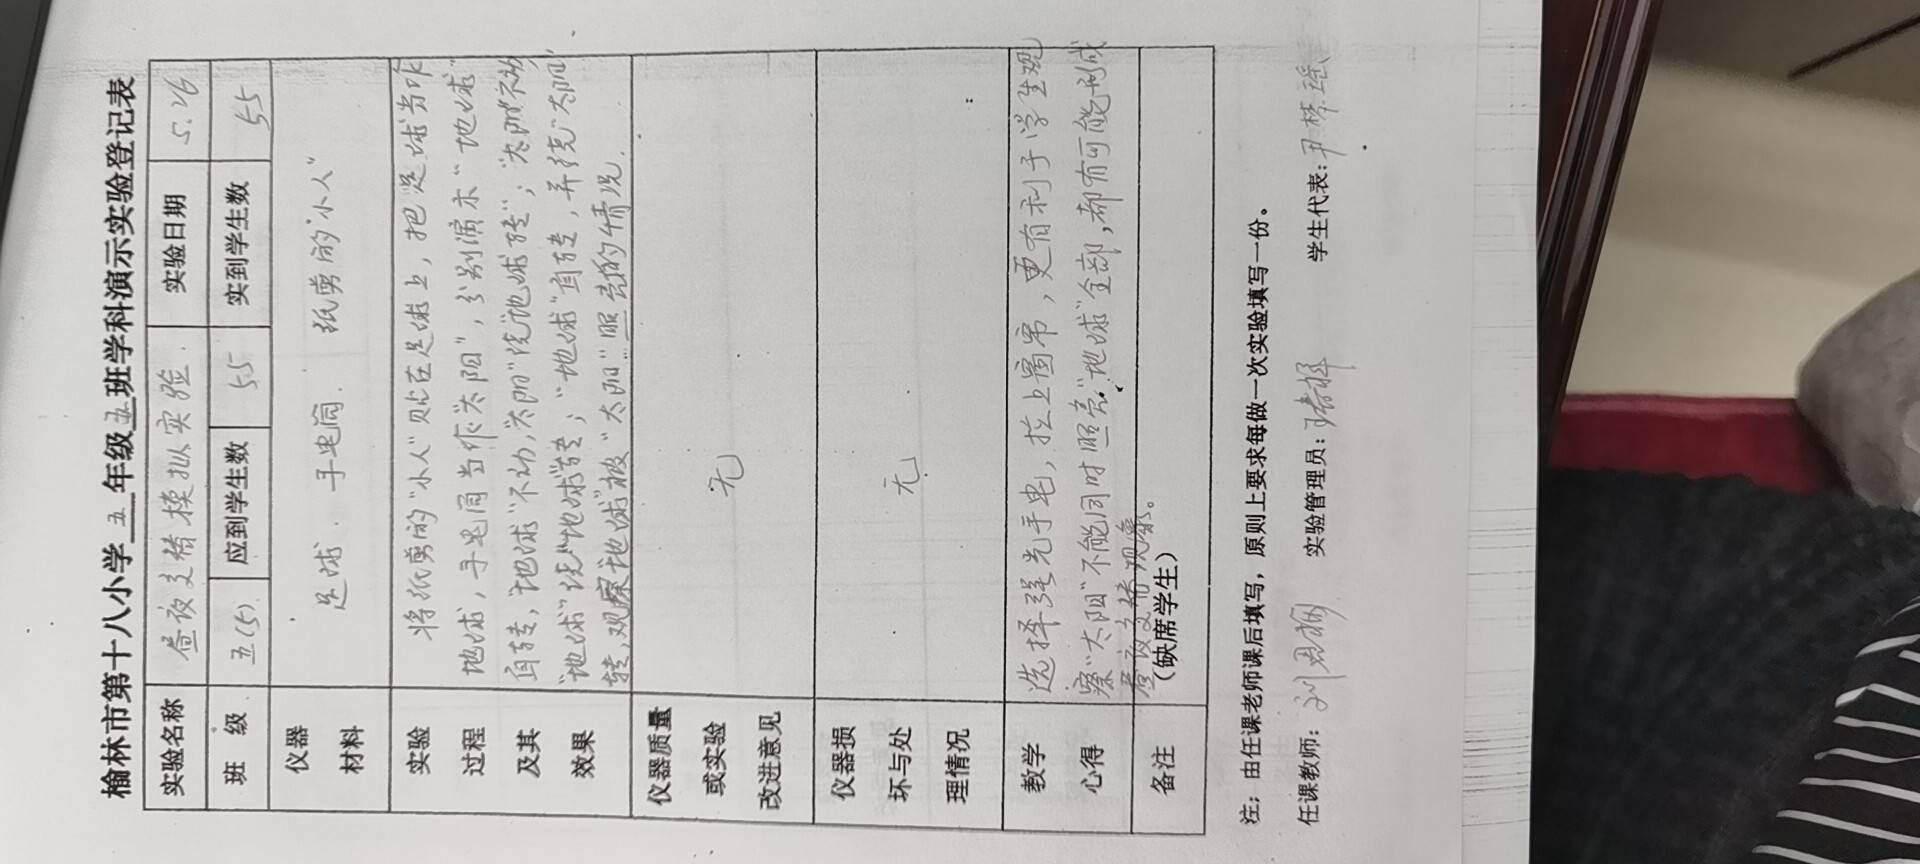 榆林市第十八小学五年级五班学科演示实验登记表
实验名称 昼夜交替模拟实验. 实验日期 5.26
班 级 五(5) 应到学生数 55 实到学生数 55
仪器
材料
足球. 手电筒. 纸剪的"小人"
实验
过程
及其
效果
将纸剪的"小人"贴在足球上,把足球当作
地球,手电筒当作"太阳",分别演示"地球"
自转,"地球"不动,"太阳"绕"地球转";"太阳"不动,
"地球"绕"地球"转;"地球"自转,并绕"太阳"
转,观察"地球"被"太阳"照亮的情况.
仪器质量
或实验
改进意见
无
仪器损
坏与处
理情况
无
教学
心得
选择强光手电,拉上窗帘,更有利于学生观
察"太阳"不能同时照亮"地球"全部,都有可能形成
昼夜交替现象。
备注
(缺席学生)
注:由任课老师课后填写,原则上要求每做一次实验填写一份。
任课教师: 实验管理员: 学生代表: